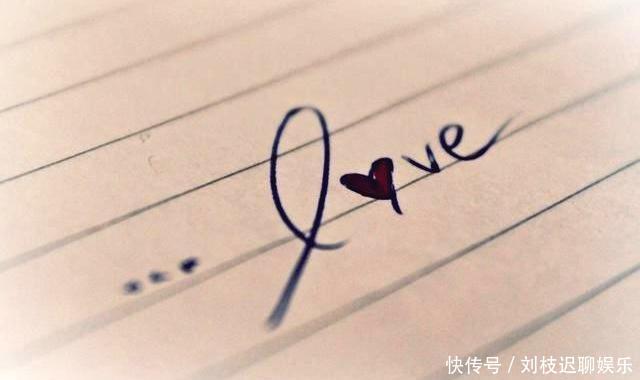 ... love
快传号 / 刘枝迟聊娱乐